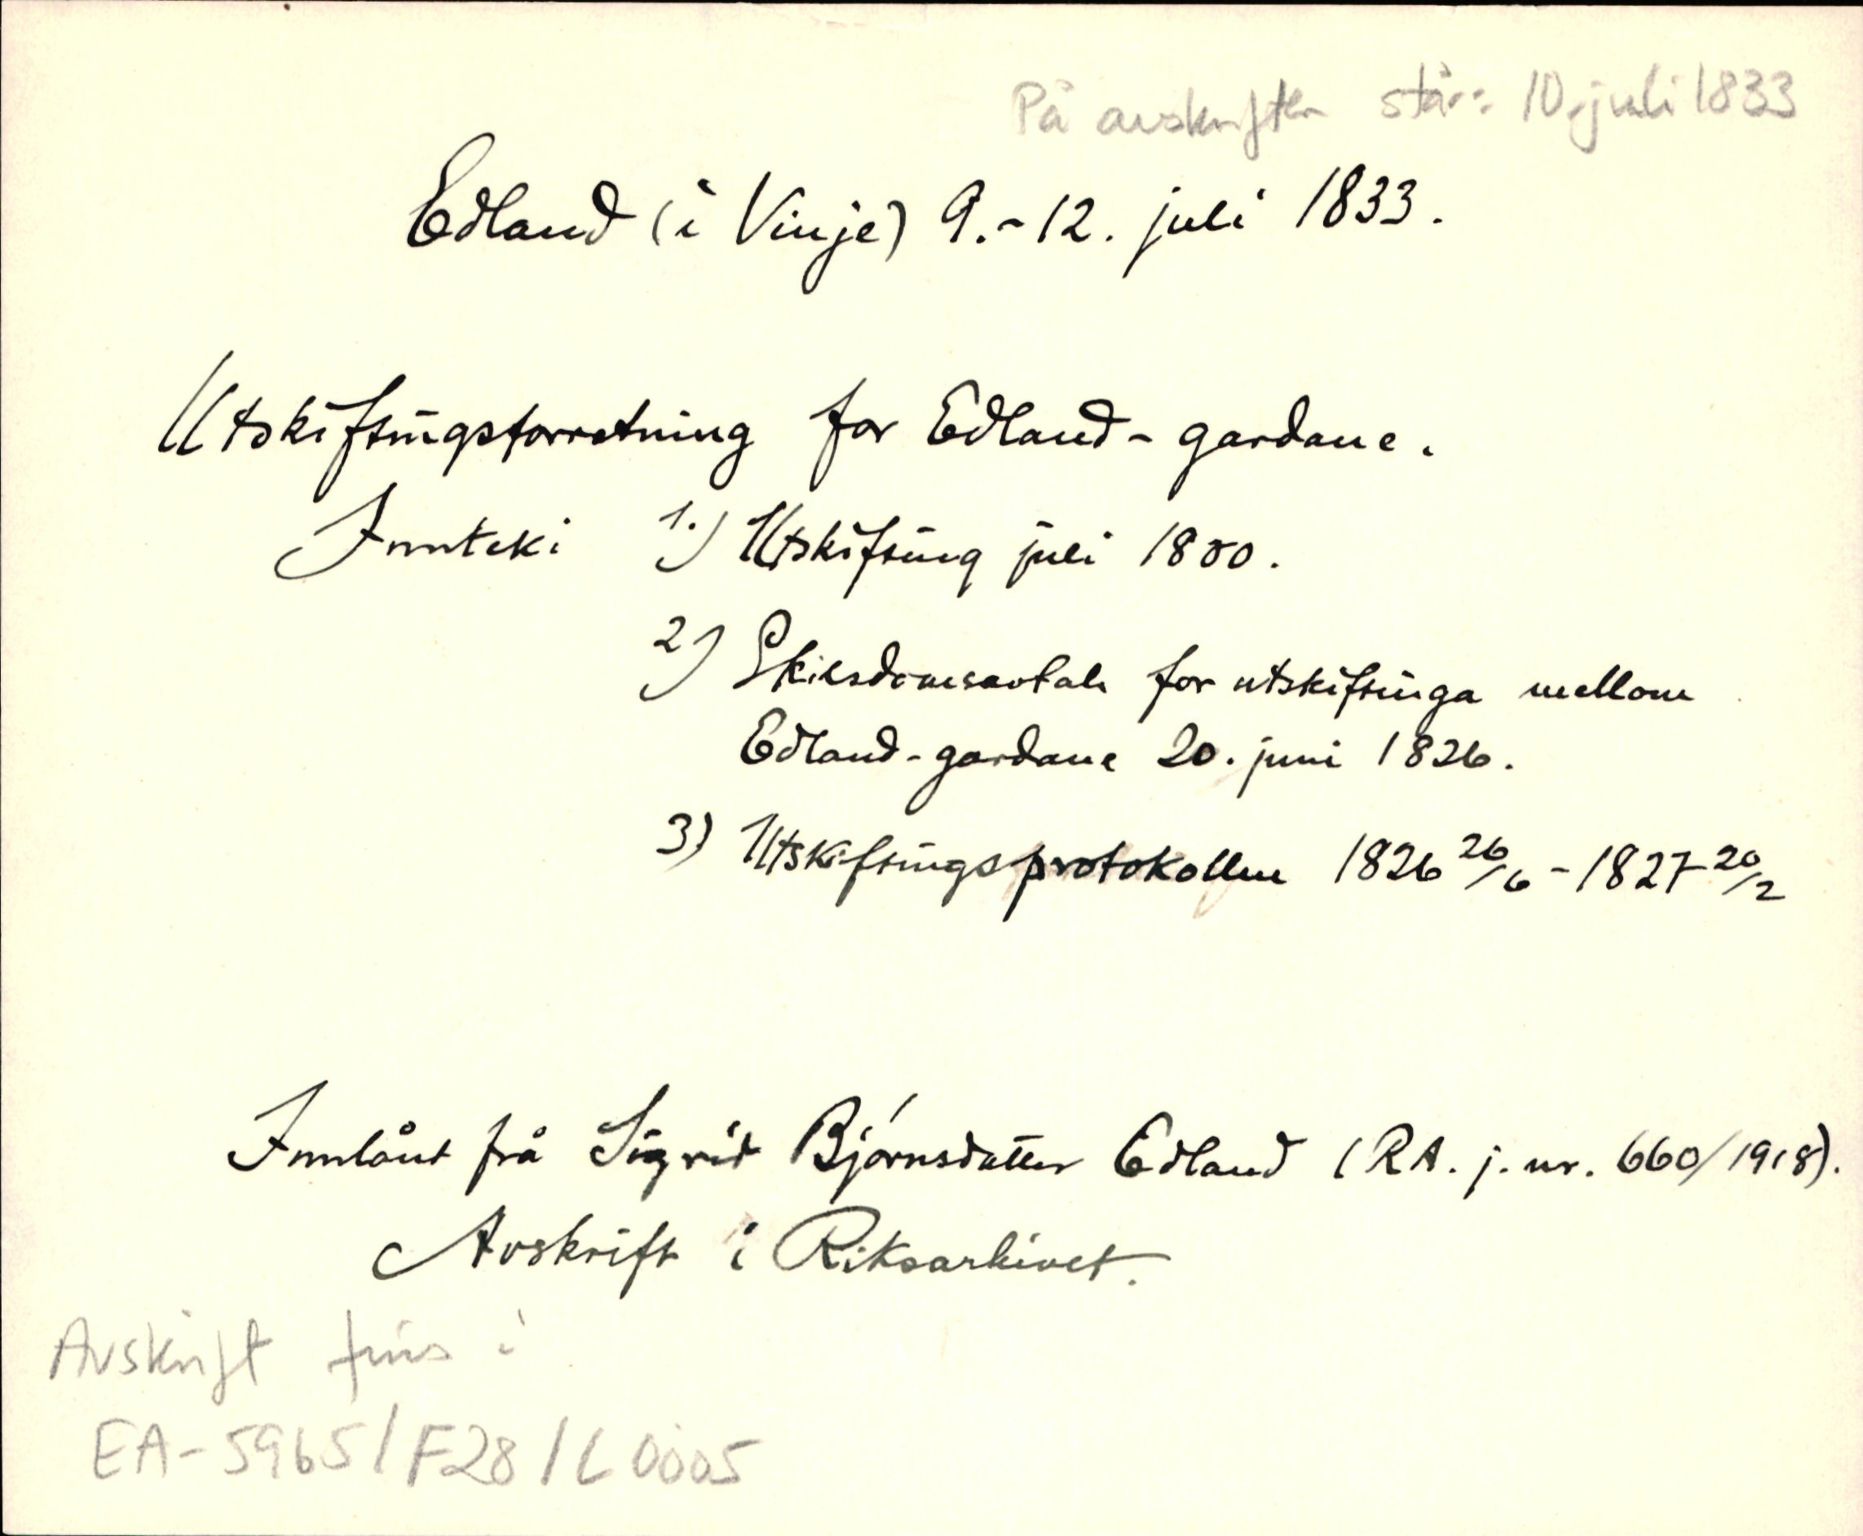 På avskriften står: 10. juli 1833
Edland (i Vinje) 9.-12. juli 1833.
Utskiftingsforretning for Edland-gardane.
Innteki 1.) Utskifting juli 1800.
2) Skilsdomsavtale for utskiftinga mellom
Edland-gardane 20. juni 1826.
3) Utskiftingsprotokollen 1826 26/6 - 1827 20/2
Innlånt frå Sigrid Bjørnsdatter Edland (RA. j. nr. 660/1918).
Avskrift i Riksarkivet.
Avskrift finns i
EA-5965/F28/L0005